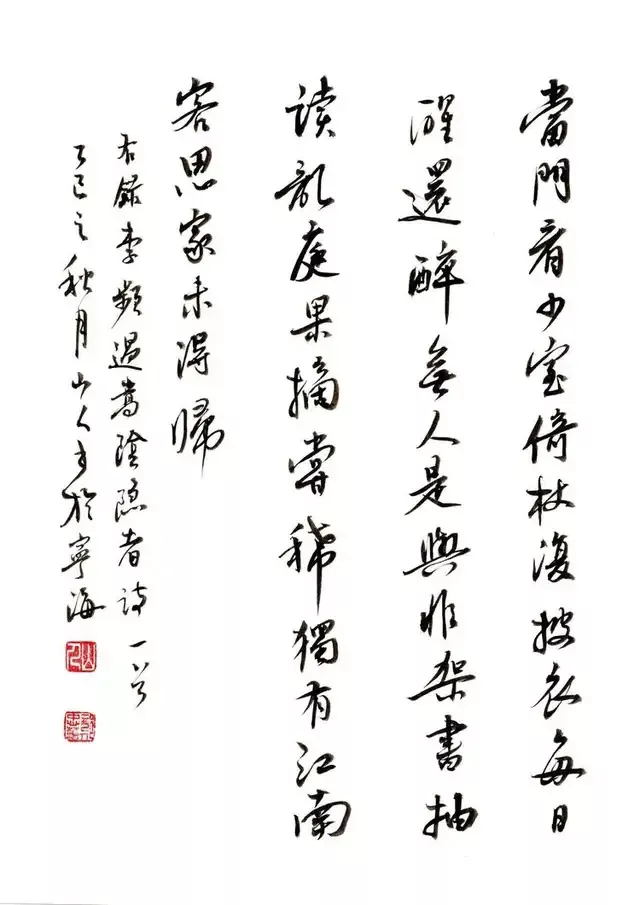 當門看少室倚杖復披衣每日
醒還醉無人是與非架書抽
讀亂庭果摘嘗稀獨有江南
客思家未得歸
右錄李頻過嵩陰隱者詩一首
乙巳之秋月山人書於寧海